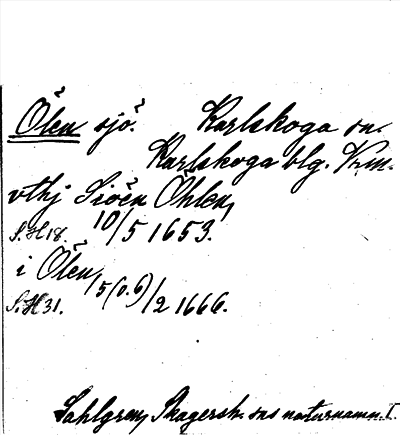 Ölen sjö. Karlskoga sn.
Karlskoga blg. Vrm.
vthj Siöen Öhlen,
S.H18. 10/5 1653.
i Ölen,
S.H31. 5(o.6)/2 1666.
Sahlgren, Skagersh. sns naturnamn. I.